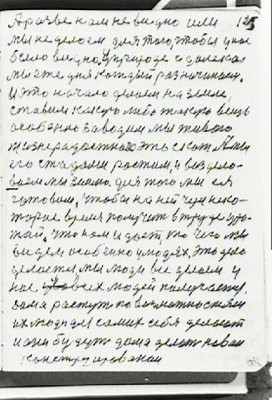 А разве нам не видно или 125
мы не делаем для того, чтобы у нас
было видно. В природе сделалась
мы уже дня который различаем.
И это начало делаем на земле,
ставим какую либо такую вещь
особенно заводим мы живого
жизнерадостного это скот. Мы
его стадами растим, и возделы-
ваем мы землю. Для того мы ея
готовим, чтобы на ней через неко-
торые время получить в труде уро-
жай. Что нам и дает, то чего мы
видим особенно у людях. Это дело
делается мы люди все делаем у
нас у всех людей получается.
Сами растут по возможностям
их люди для самих себя делают
и они будут дома делать новая
конструирования